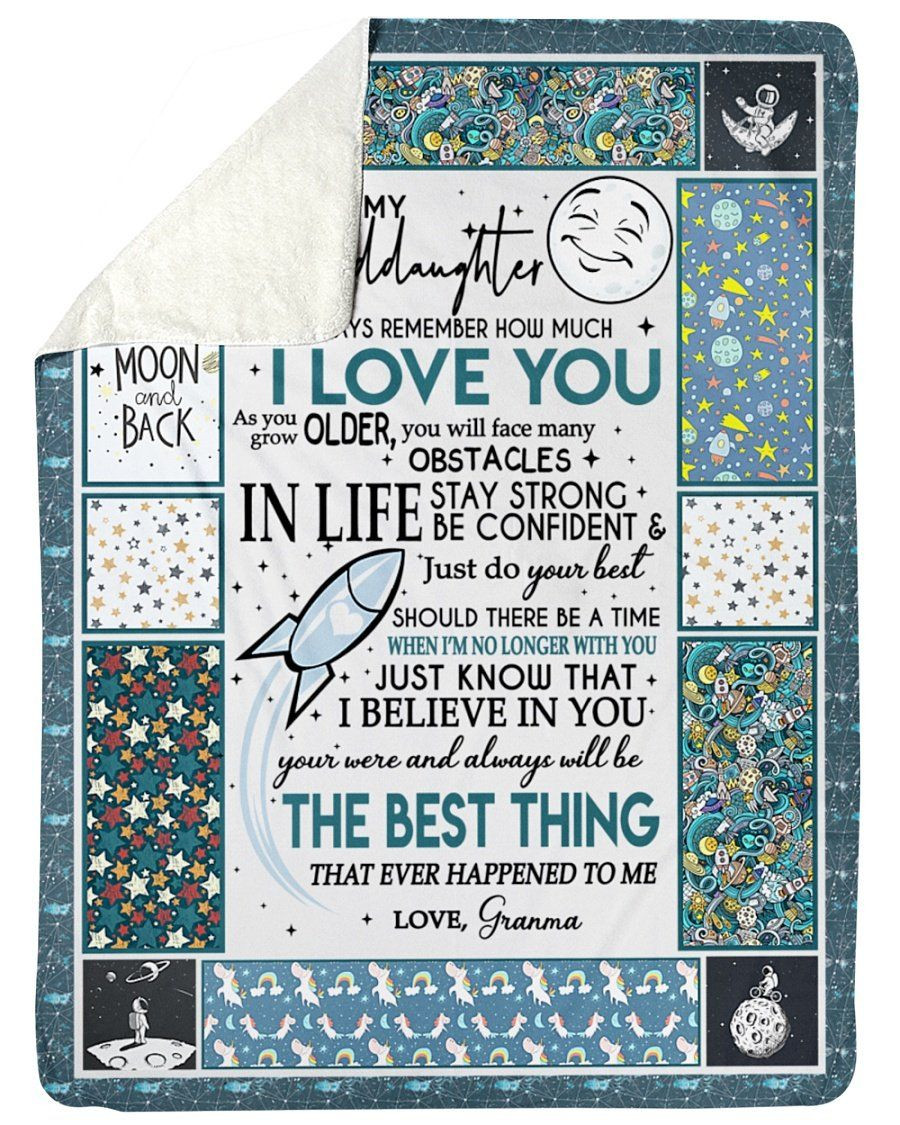 MY
ddaughter
AYS REMEMBER HOW MUCH
I LOVE YOU
As you
grow OLDER, you will face many
OBSTACLES
IN LIFE STAY STRONG
BE CONFIDENT &
Just do your best
SHOULD THERE BE A TIME
WHEN I'M NO LONGER WITH YOU
JUST KNOW THAT
I BELIEVE IN YOU
your were and always will be
THE BEST THING
THAT EVER HAPPENED TO ME
LOVE, Granma
MOON
and
BACK